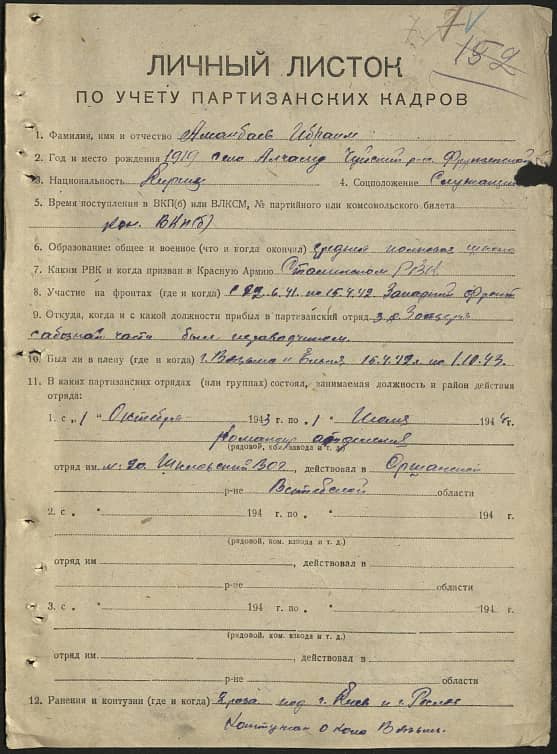 7
152
ЛИЧНЫЙ ЛИСТОК
ПО УЧЕТУ ПАРТИЗАНСКИХ КАДРОВ
1. Фамилия, имя и отчество Аманбаев Ибраим
2. Год и место рождения 1919 село Чуйский р-н Фрунзенской
3. Национальность Киргиз 4. Соцположение Служащий
5. Время поступления в ВКП(б) или ВЛКСМ, № партийного или комсомольского билета
кан. ВКП(б)
6. Образование: общее и военное (что и когда окончил) средний полковая школа
7. Каким РВК и когда призван в Красную Армию Сталинском РВК
8. Участие на фронтах (где и когда) с 22.6.41. по 15.4.42 Западный фронт
9. Откуда, когда и с какой должности прибыл в партизанский отряд
части был
10. Был ли в плену (где и когда) г. Вязьма и Ельня 15.4.42 г по 1.10.43.
11. В каких партизанских отрядах (или группах) состоял, занимаемая должность и район действия
отряда:
1. с „1 " Октября 1943 г. по „1 " Июля 1944 г.
Командир отделения
(рядовой, ком. взвода и т. д.)
отряд им , действовал в Оршанской
р-не Витебской области
2. с „ " 194 г. по „ " 194 г.
(рядовой, ком. взвода и т. д.)
отряд им , действовал в
р-не области
3. с „ " 194 г. по „ " 194 г.
(рядовой, ком. взвода и т. д.)
отряд им. , действовал в
р-не области
12. Ранения и контузии (где и когда) под г. и г.
около Вязьмы.